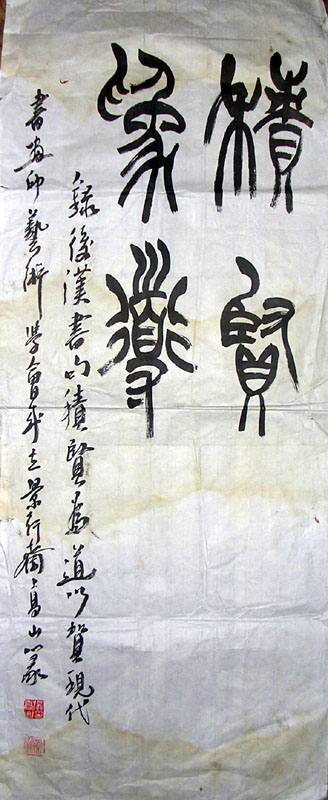 積賢
為道
錄後漢書句積賢為道以贊現代
書畫印藝術學會成立景行高山篆